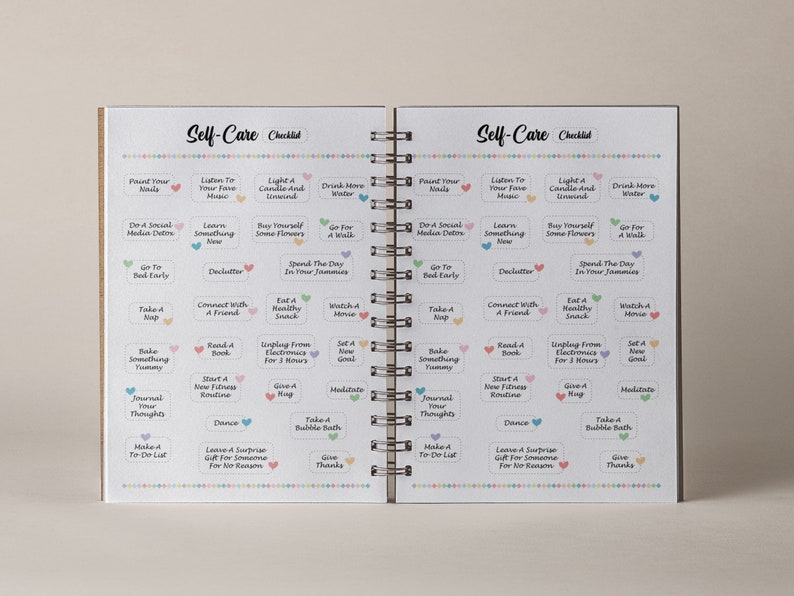 Self-Care Checklist
Paint Your
Nails
Listen To
Your Fave
Music
Light A
Candle And
Unwind
Drink More
Water
Do A Social
Media Detox
Learn
Something
New
Buy Yourself
Some Flowers
Go For
A Walk
Go To
Bed Early
Declutter
Spend The Day
In Your Jammies
Take A
Nap
Connect With
A Friend
Eat A
Healthy
Snack
Watch A
Movie
Bake
Something
Yummy
Read A
Book
Unplug From
Electronics
For 3 Hours
Set A
New
Goal
Journal
Your
Thoughts
Start A
New Fitness
Routine
Give A
Hug
Meditate
Dance
Take A
Bubble Bath
Make A
To-Do List
Leave A Surprise
Gift For Someone
For No Reason
Give
Thanks
Self-Care Checklist
Paint Your
Nails
Listen To
Your Fave
Music
Light A
Candle And
Unwind
Drink More
Water
Do A Social
Media Detox
Learn
Something
New
Buy Yourself
Some Flowers
Go For
A Walk
Go To
Bed Early
Declutter
Spend The Day
In Your Jammies
Take A
Nap
Connect With
A Friend
Eat A
Healthy
Snack
Watch A
Movie
Bake
Something
Yummy
Read A
Book
Unplug From
Electronics
For 3 Hours
Set A
New
Goal
Journal
Your
Thoughts
Start A
New Fitness
Routine
Give A
Hug
Meditate
Dance
Take A
Bubble Bath
Make A
To-Do List
Leave A Surprise
Gift For Someone
For No Reason
Give
Thanks